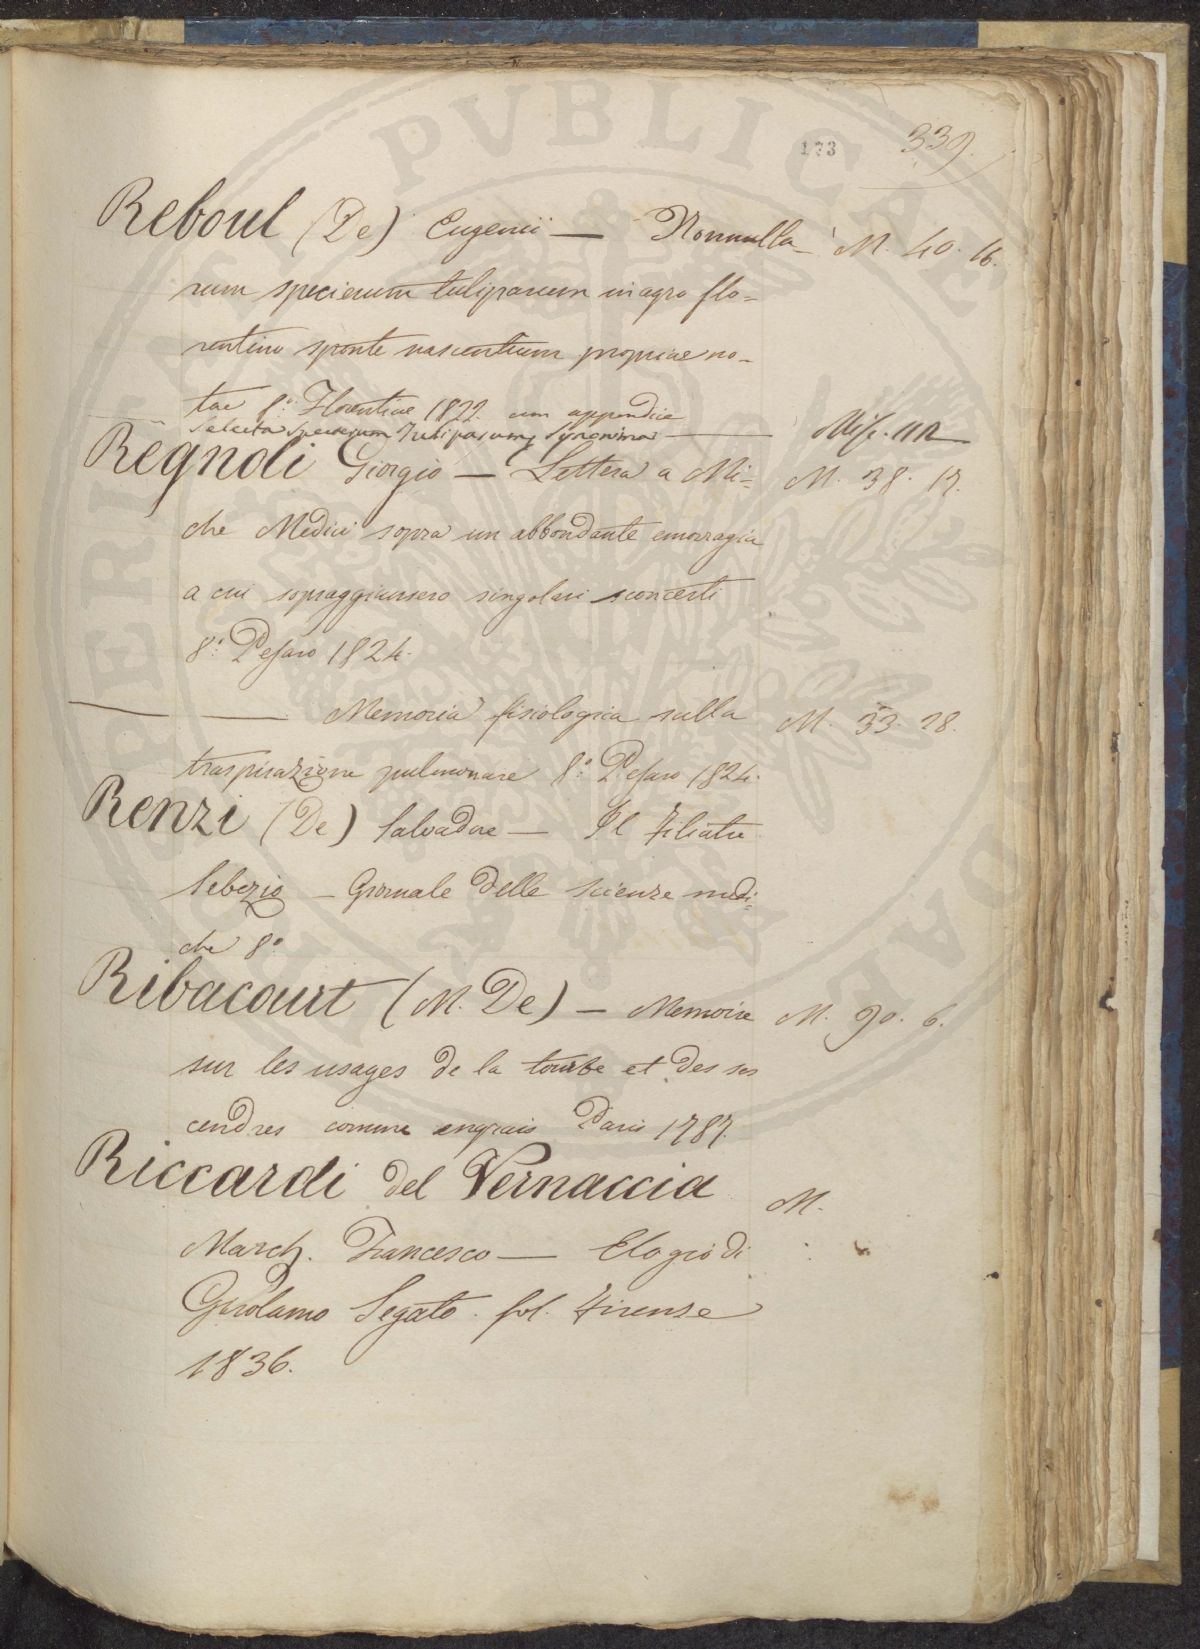 339.
173
Reboul (De) Eugenii — Nonnulla- M. 40. 16.
rum specierum tuliparum in agro flo-
rentino sponte nascentium propriae no-
tae 8.° Florentiae 1822 cum appendice
Selecta Specierum Tuliparumq Synonima — Misc. 112
Regnoli Giorgio — Lettera a Mi- M. 38. 17.
che Medici sopra un abbondante emorragia
a cui sopraggiunsero singolari sconcerti
8.° Pesaro 1824.
— — Memoria fisiologica sulla M. 33. 28.
traspirazione pulmonare 8.° Pesaro 1824.
Renzi (De) Salvadore — Il Filiatre
Sebezio — Giornale delle scienze medi-
che 8.°
Ribacourt (M. De) — Memoire M. 90. 6.
sur les usages de la tourbe et des ses
cendres comme engrais Paris 1787.
Riccardi del Vernaccia M.
March. Francesco — Elogio di
Girolamo Segato. fol. Firenze
1836.